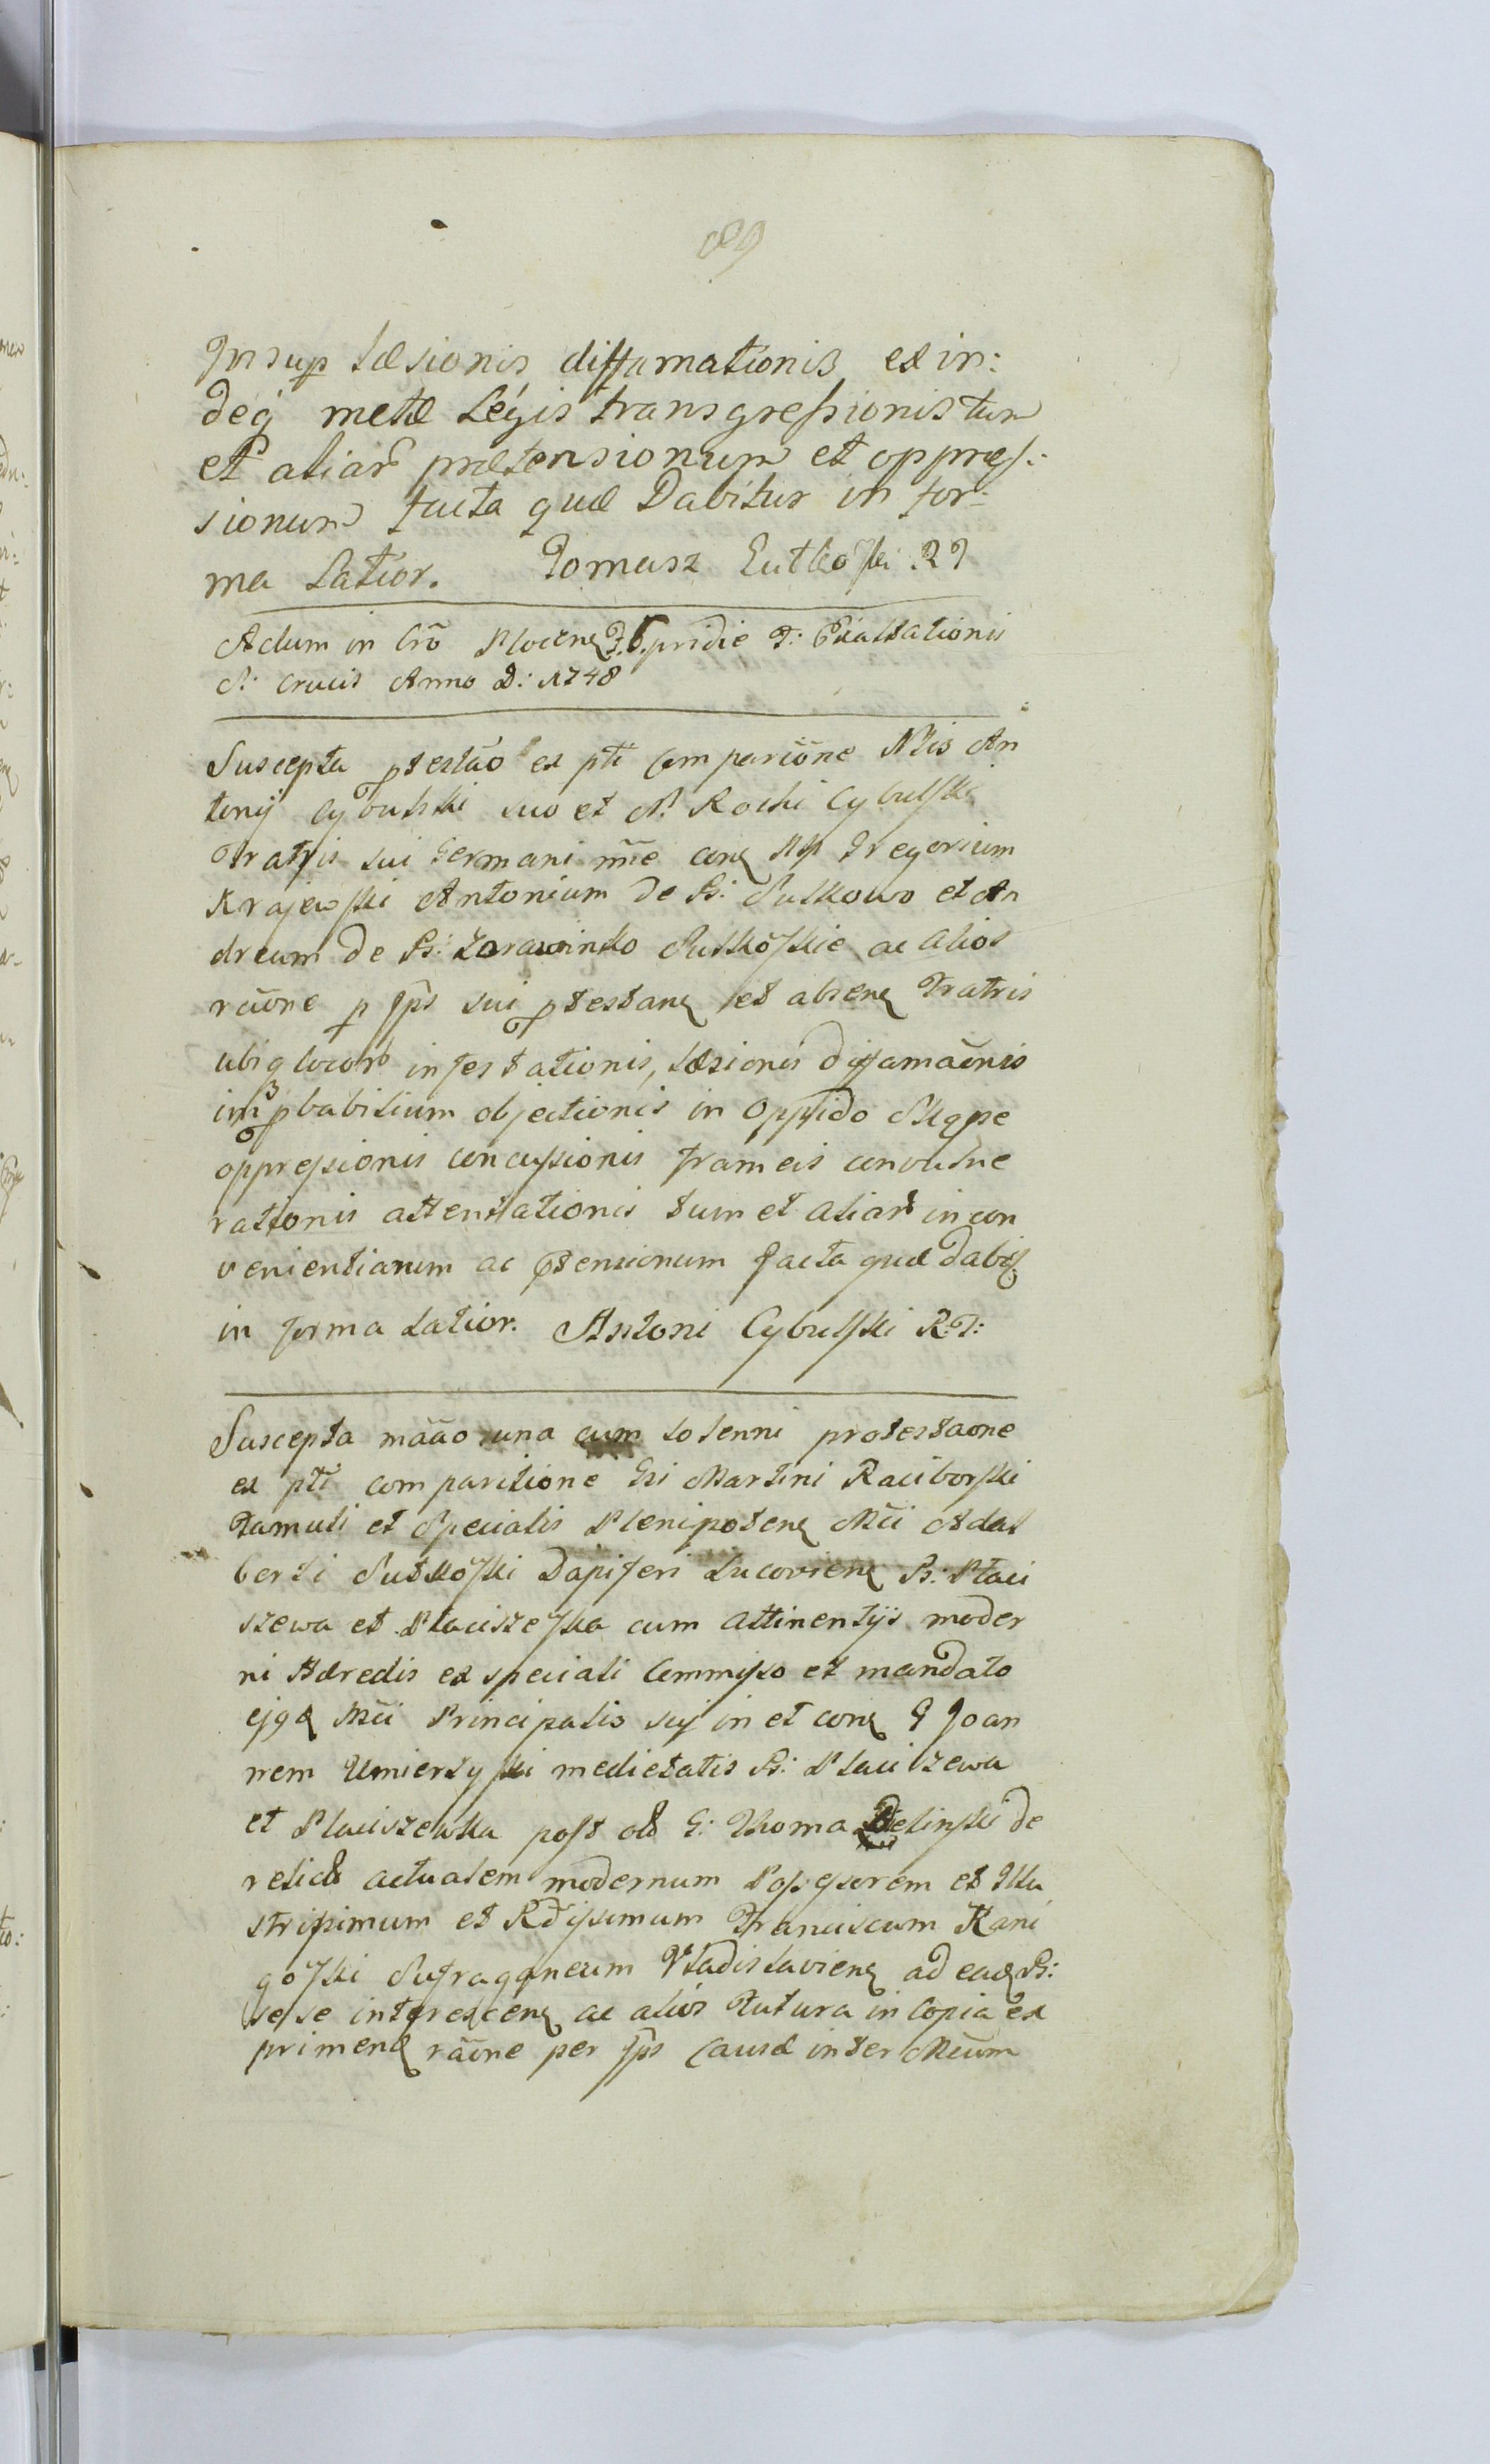 89
Insup læsionis diffamationis ex in:
deq metæ Legis transgressionis tum
et aliar prætensionum et oppres:
sionum facta quæ Dabitur in for:
ma Latior. Tomasz Rutkoski
Actum in Crō Plocen F. 6. pridie F: Exaltationis
S: Crucis Anno D: 1748
Suscepta ptestāo ex pti Compariōne Nlis An
tonij Cybulski suo et N: Rochi Cybulski
Fratris sui Germani nn̄e con Nb Gregorium
Krajewski Antonium de B: Sutkowo et An
dream de B: Zarawinko Sutkoskie ac alios
raōne p Ips sui ptestan et absen Fratris
ubiq locor infestationis, læsionis diffamaōnis
impbabilium objectionis in Oppido Skępe
oppressionis concussionis frameis convulne
rationis attentationis tum et aliar incon
venientiarum ac ptensionum facta quæ dabit
in forma Latior. Antoni Cybulski
Suscepta māāo una cum solenni protestaone
ex pti comparitione Gsi Martini Raciborski
Famuli et Specialis Plenipoten Mci Adal
berti Sutkoski Dapiferi Lucovien B: Staci
szewa et Staciszeska cum attinentijs moder
ni Hæredis ex speciali Commisso et mandato
ejqd Mci Principalis suj in et con G Joan
nem Umierzyski medietatis B: Staciszewa
et Staciszewka post ol G: Thoma Bielinski de
relict actualem modernum Possessorem et Illu
strissimum et Rdissimum Franciscum Kani
goski Sufraganeum Vladislavien ad ead B:
sese interescen ac alios Futura in Copia ex
primend raōne per Ips Causæ inter Mcum